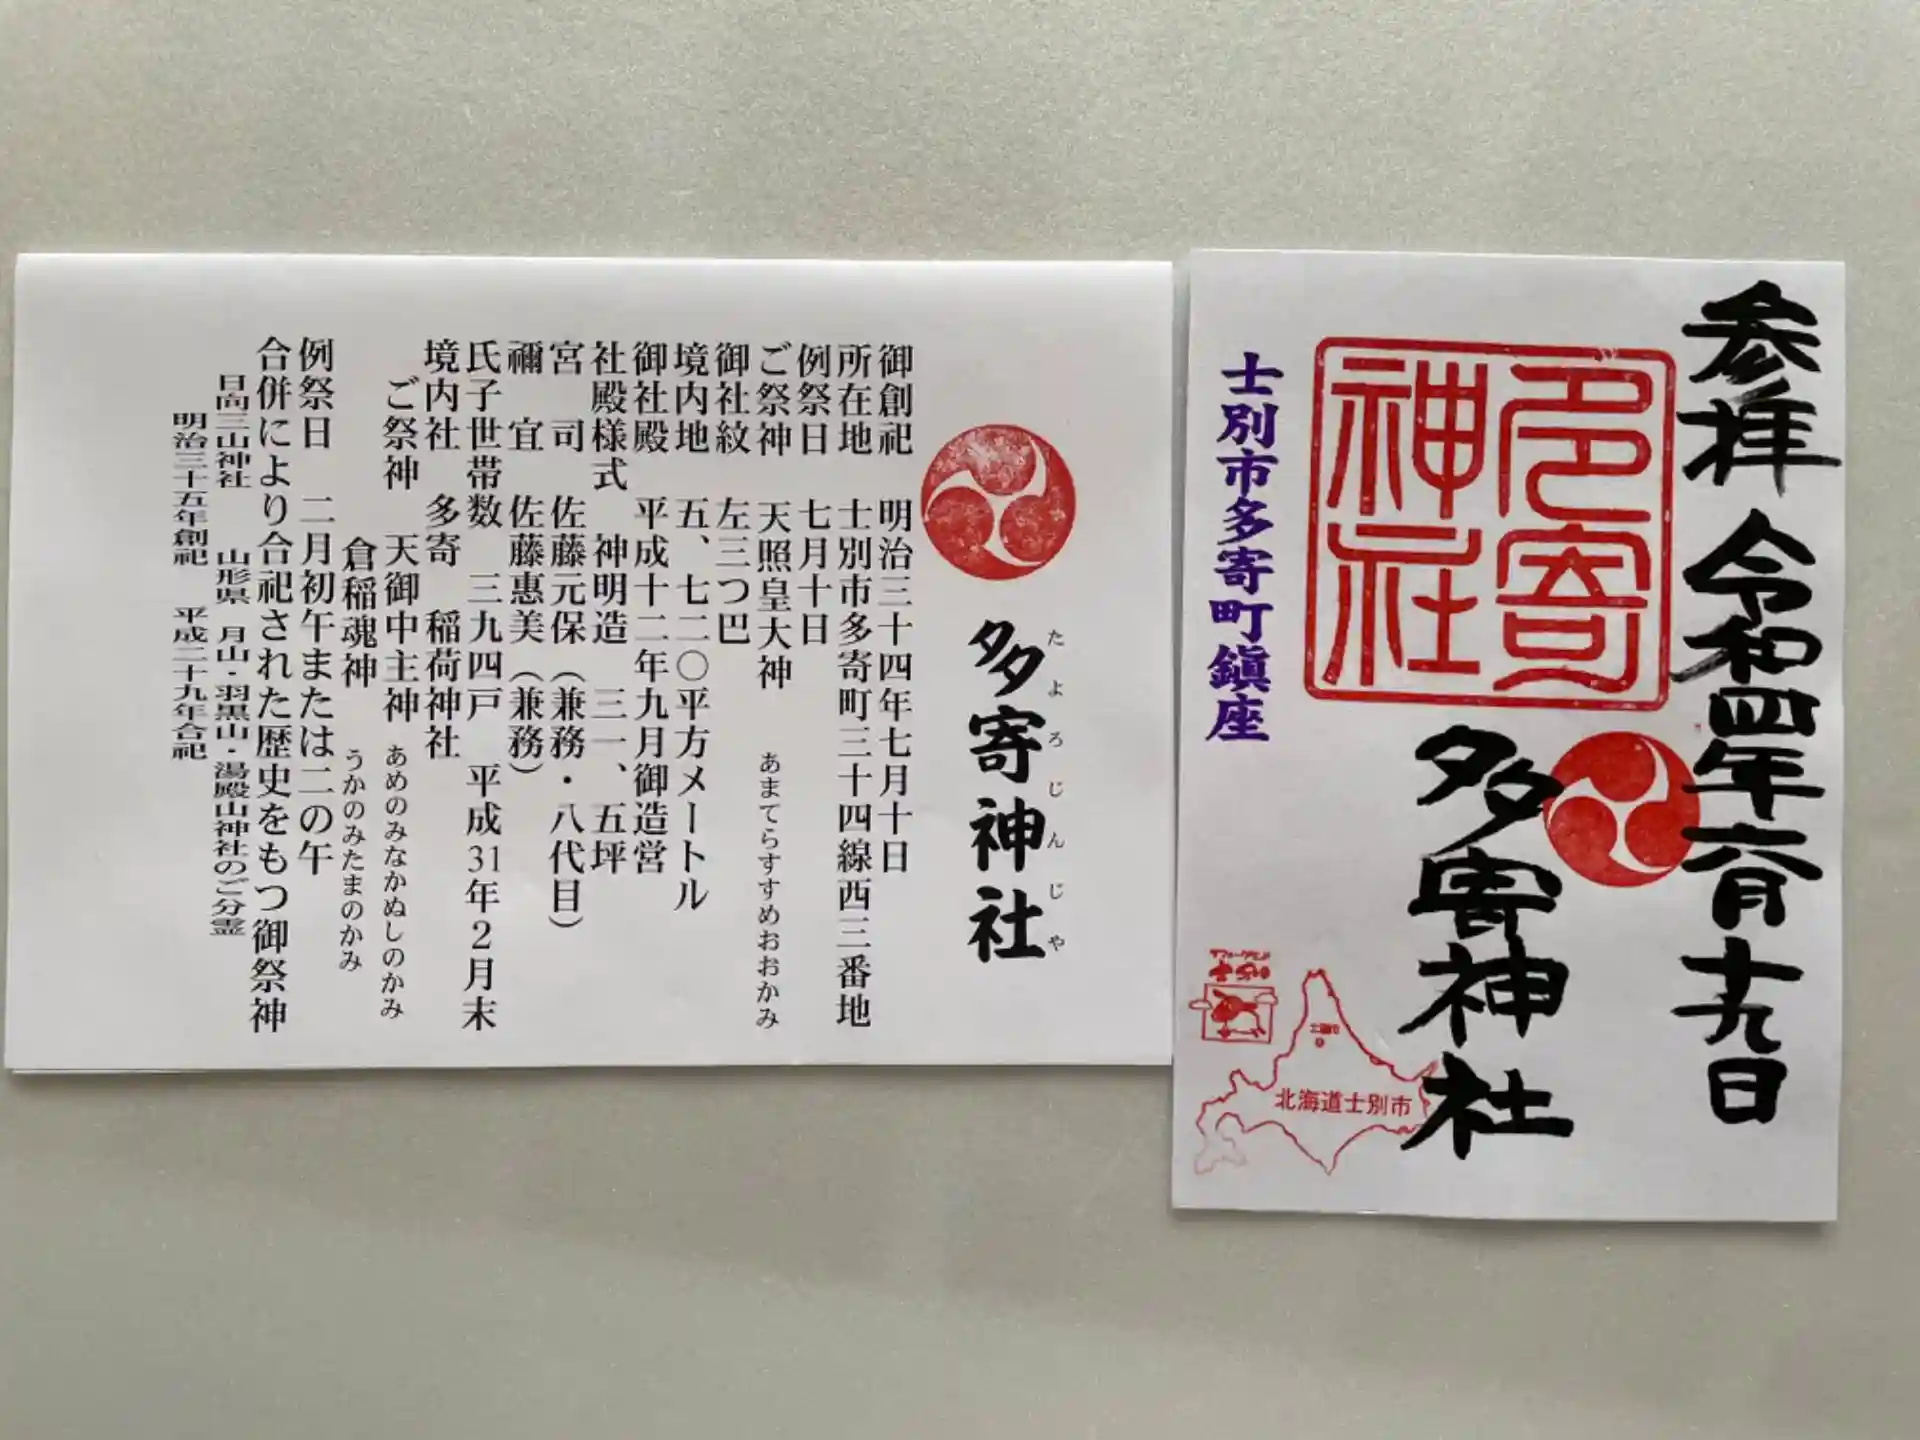 多寄神社
たよろじんじゃ
御創祀 明治三十四年七月十日
所在地 士別市多寄町三十四線西三番地
例祭日 七月十日
ご祭神 天照皇大神 あまてらすすめおおかみ
御社紋 左三つ巴
境内地 五、七二〇平方メートル
御社殿 平成十二年九月御造営
社殿様式 神明造 三一、五坪
宮司 佐藤元保（兼務・八代目）
禰宜 佐藤惠美（兼務）
氏子世帯数 三九四戸 平成31年2月末
境内社 多寄 稲荷神社
ご祭神 天御中主神 あめのみなかぬしのかみ
倉稲魂神 うかのみたまのかみ
例祭日 二月初午または二の午
合併により合祀された歴史をもつ御祭神
日向三山神社 山形県 月山・羽黒山・湯殿山神社のご分霊
明治三十五年創祀 平成二十九年合祀
参拝 令和四年六月十九日
多寄
神社
多寄神社
士別市多寄町鎮座
北海道士別市